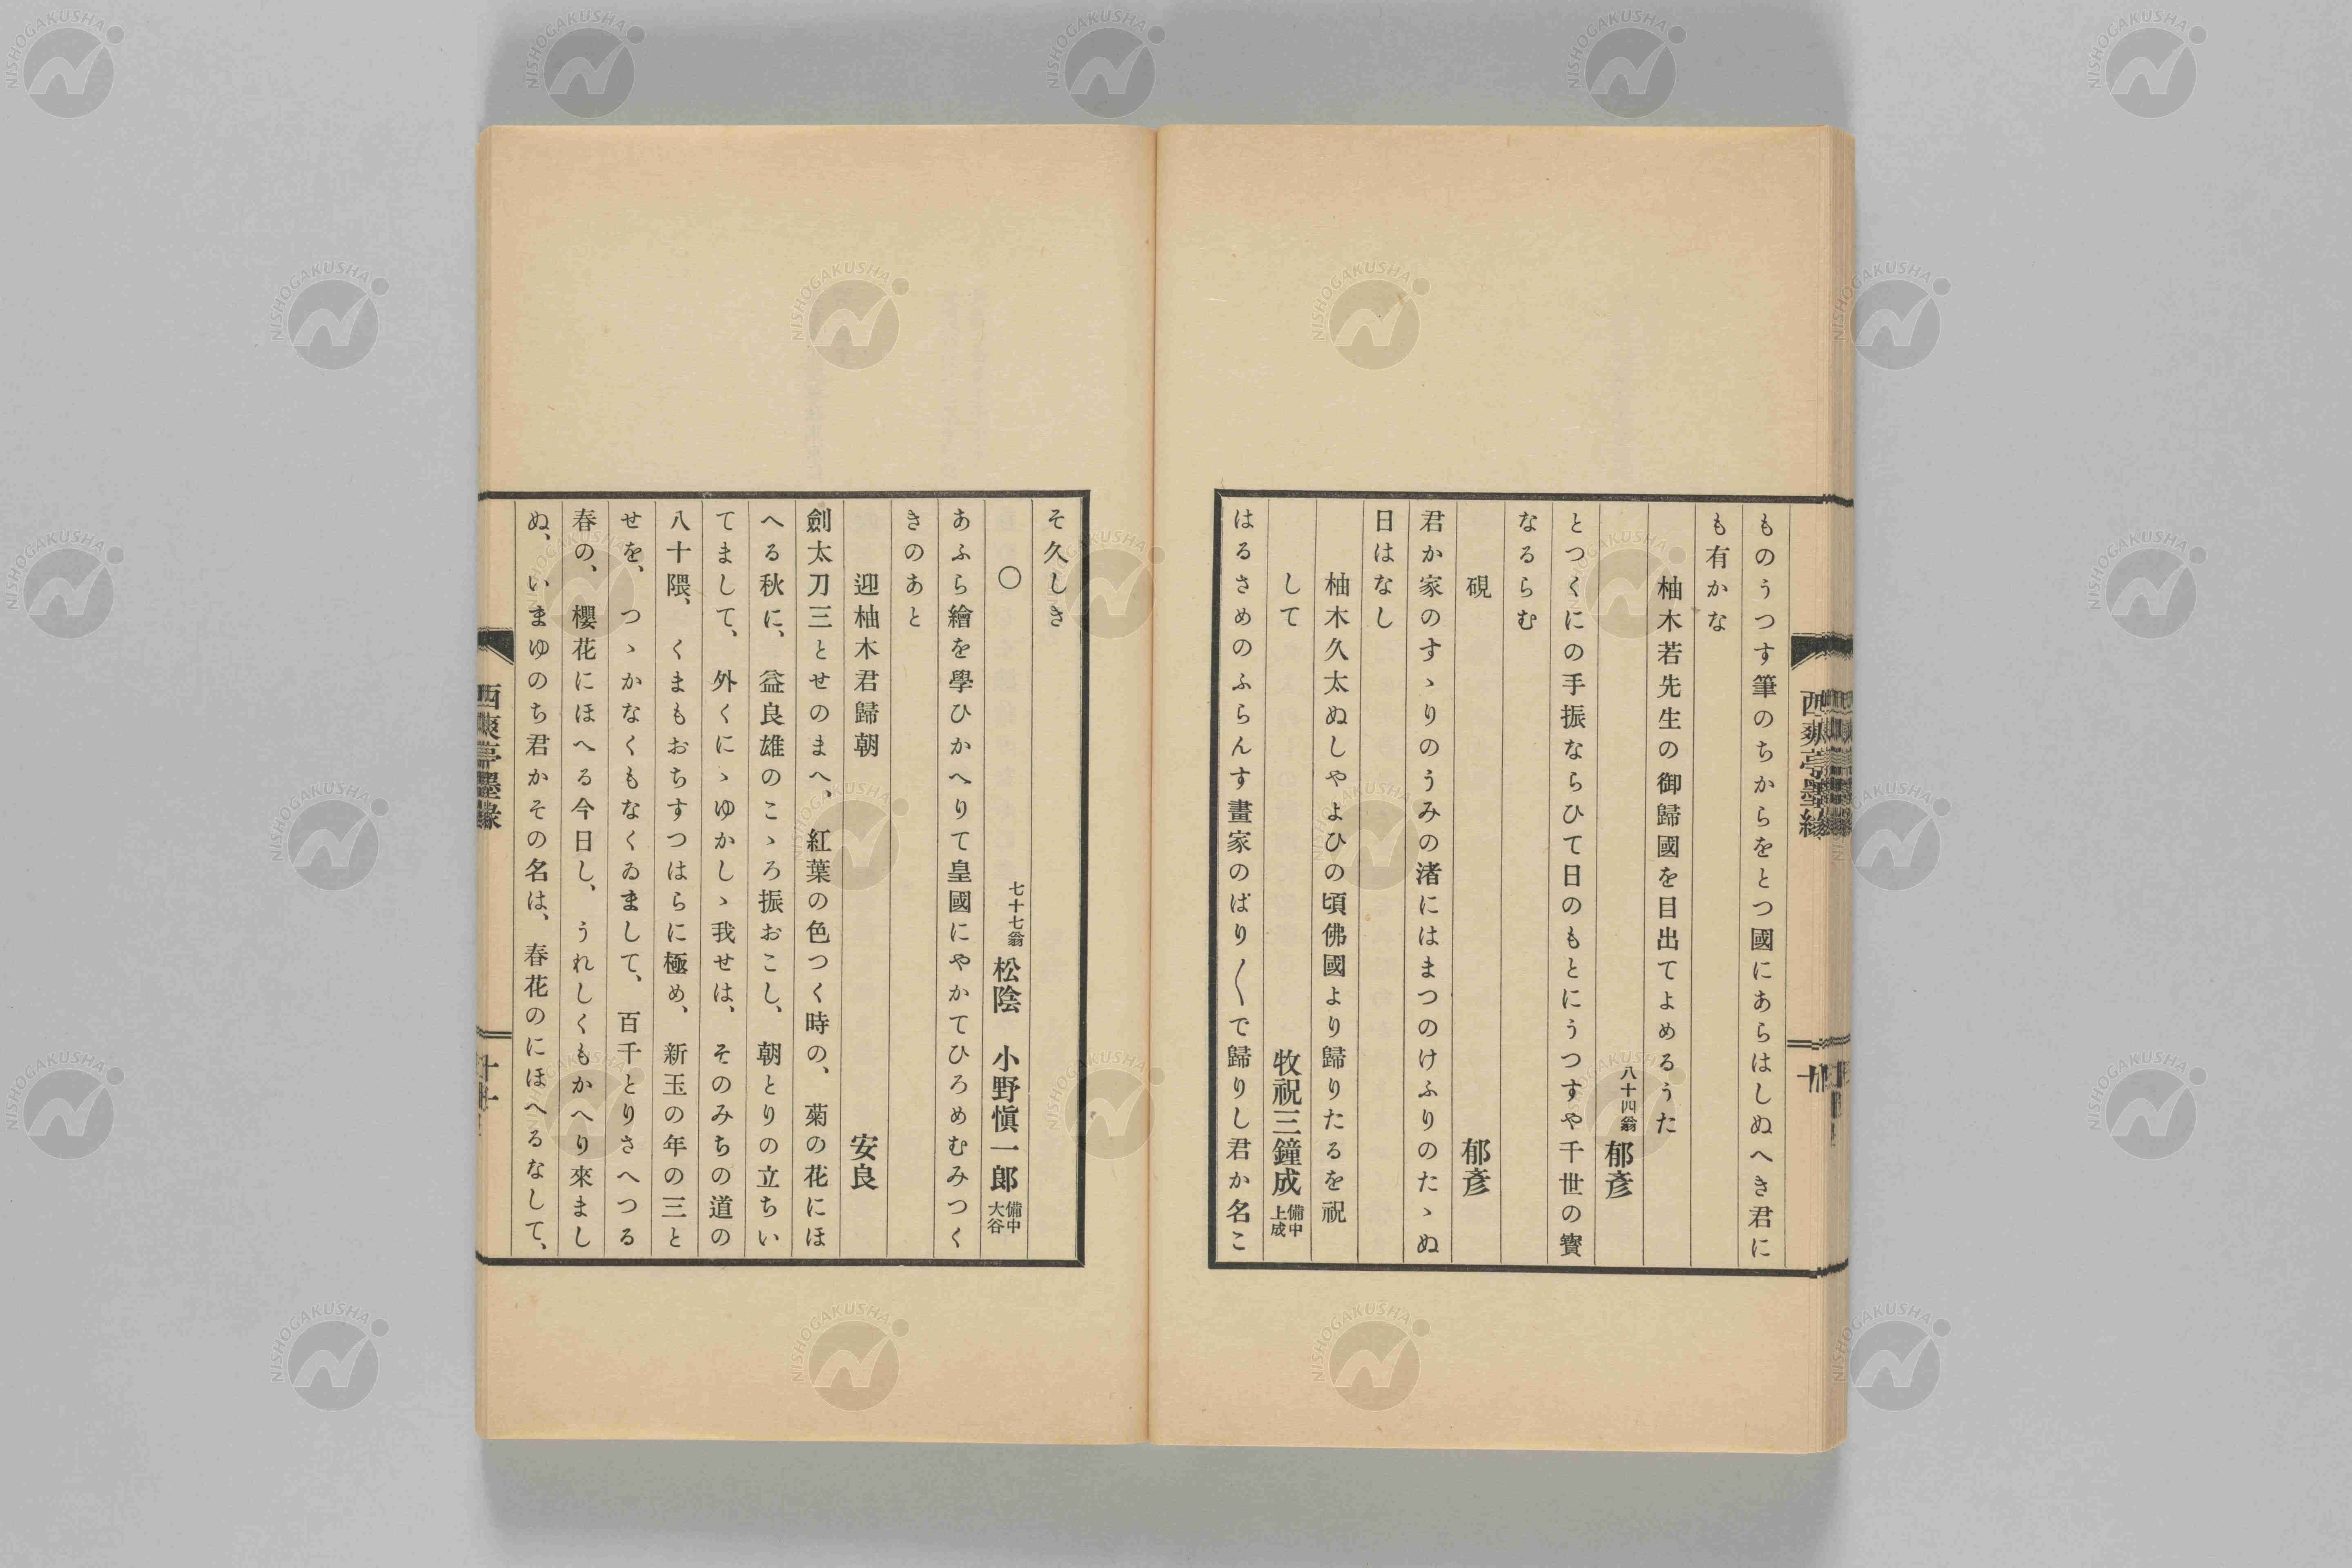 ものうつす筆のちからをとつ國にあらはしぬへき君に
も有かな
柚木若先生の御歸國を目出てよめるうた
八十四翁 郁彥
とつくにの手振ならひて日のもとにうつすや千世の寳
なるらむ
硯 郁彥
君か家のすゝりのうみの渚にはまつのけふりのたゝぬ
日はなし
柚木久太ぬしやよひの頃佛國より歸りたるを祝
して 牧祝三鐘成 備中上成
はるさめのふらんす畫家のばり〱で歸りし君か名こ
西爽亭墨緣
そ久しき
〇 七十七翁 松陰 小野愼一郎 備中大谷
あふら繪を學ひかへりて皇國にやかてひろめむみつく
きのあと
迎柚木君歸朝 安良
劍太刀三とせのまへ、紅葉の色つく時の、菊の花にほ
へる秋に、益良雄のこゝろ振おこし、朝とりの立ちい
てまして、外くにゝゆかしゝ我せは、そのみちの道の
八十隈、くまもおちすつはらに極め、新玉の年の三と
せを、つゝかなくもなくゐまして、百千とりさへつる
春の、櫻花にほへる今日し、うれしくもかへり來まし
ぬ、いまゆのち君かその名は、春花のにほへるなして、
西爽亭墨緣
NISHOGAKUSHA